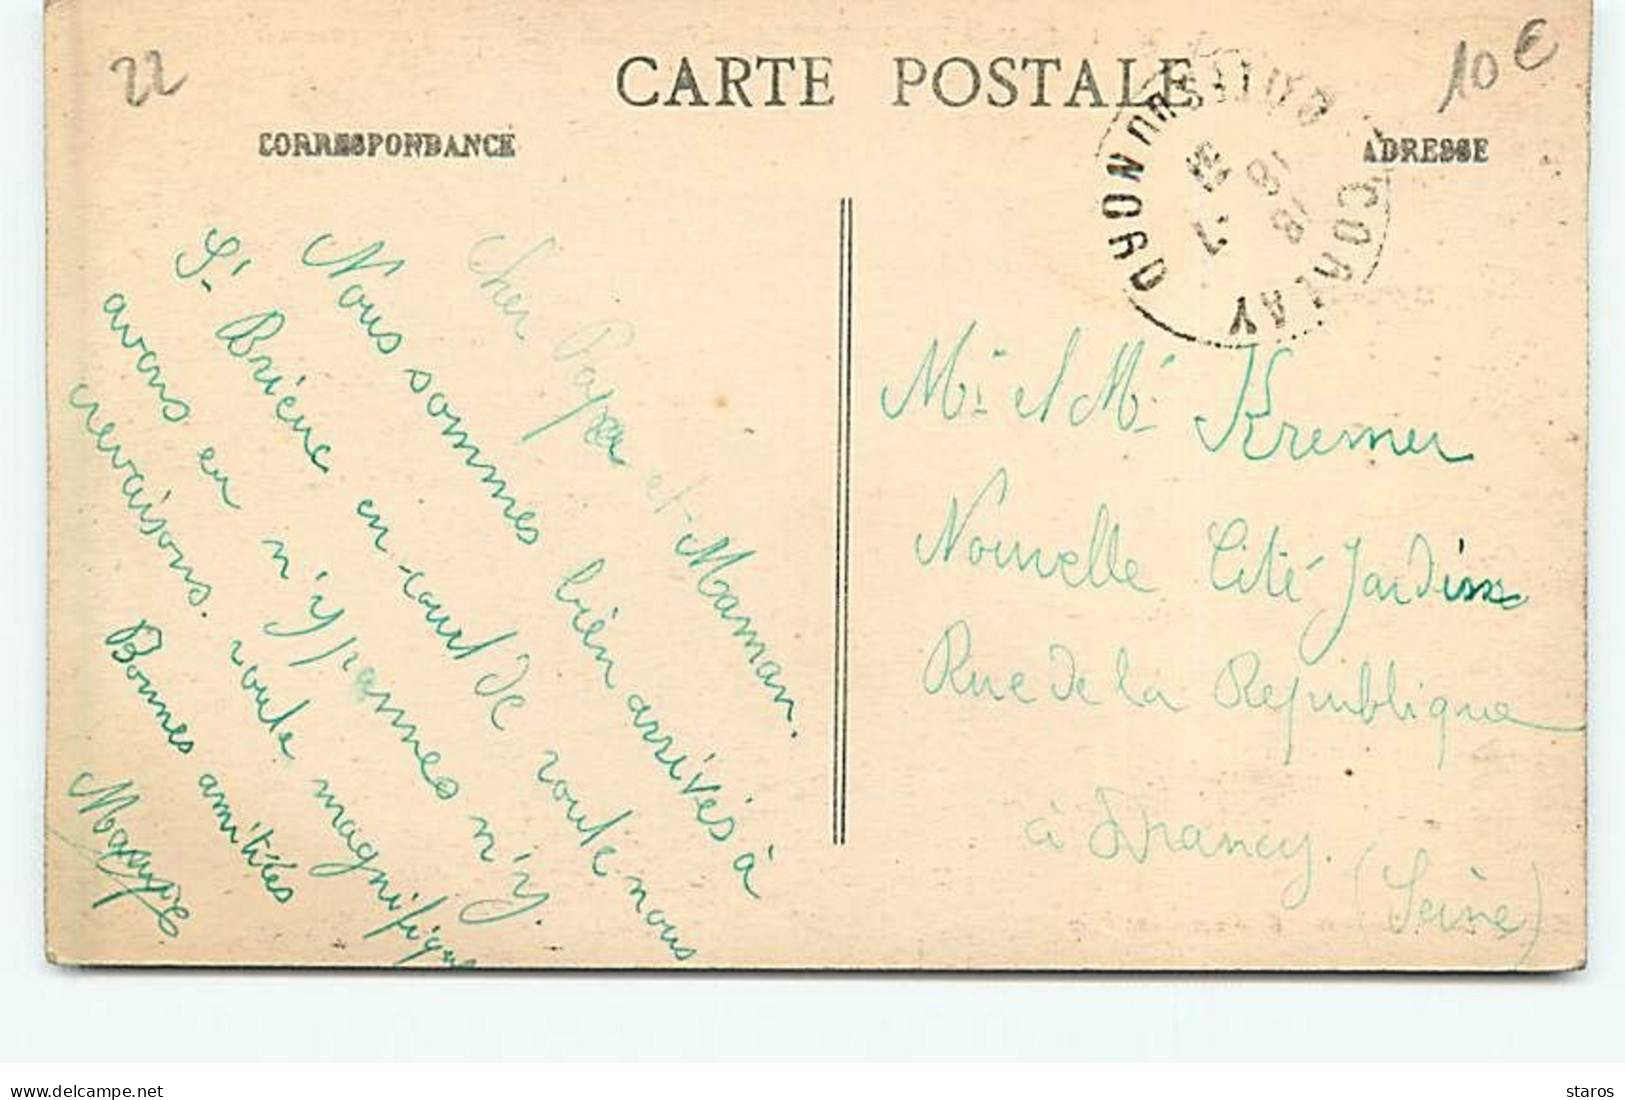 22
CARTE POSTALE
10 €
CORRESPONDANCE
ADRESSE
CORLAY
18
Cher Papa et Maman.
Nous sommes bien arrivés à
St Brieuc en court de route nous
avons eu n'y pannes n'y
crevaisons. route magnifique
Bonnes amitiés
Mr et Me Kremer
Nouvelle Cité Jardins
Rue de la Republique
à Drancy.
(Seine)
delcampe.net
staros